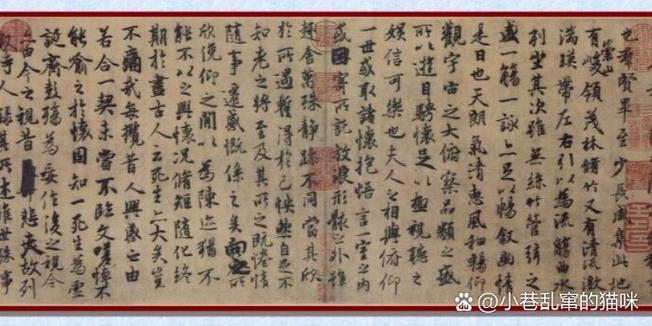 也群賢畢至少長咸集此地
有崇山峻領茂林脩竹又有清流激
湍暎帶左右引以為流觴曲水
列坐其次雖無絲竹管弦之
盛一觴一詠亦足以暢敘幽情
是日也天朗氣清惠風和暢仰
觀宇宙之大俯察品類之盛
所以遊目騁懷足以極視聽之
娛信可樂也夫人之相與俯仰
一世或取諸懷抱悟言一室之內
或因寄所託放浪形骸之外雖
趣舍萬殊靜躁不同當其欣
於所遇暫得於己怏然自足不
知老之將至及其所之既惓情
隨事遷感慨係之矣向之所
欣俛仰之閒以為陳迹猶不
能不以之興懷況脩短隨化終
期於盡古人云死生亦大矣豈
不痛哉每攬昔人興感之由
若合一契未嘗不臨文嗟悼不
能喻之於懷固知一死生為虛
誕齊彭殤為妄作後之視今
亦由今之視昔悲夫故列
敘時人錄其所述雖世殊事
@小巷乱窜的猫咪